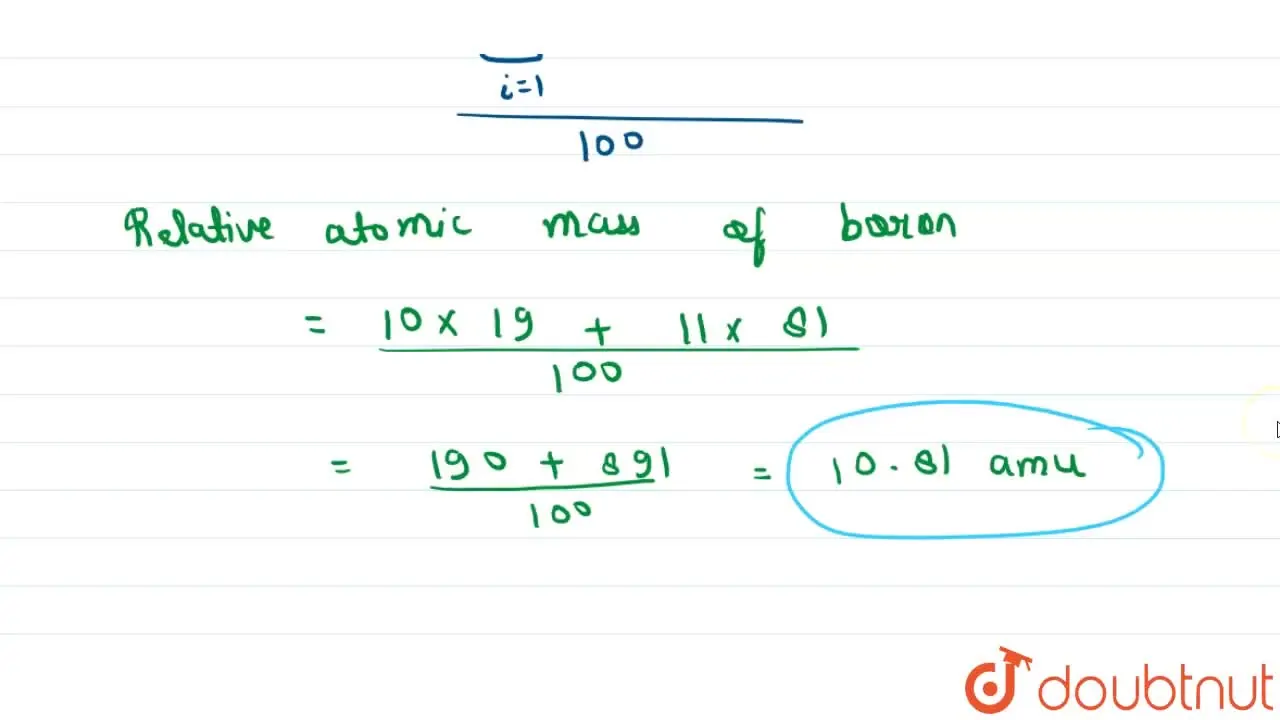 i=1
100
Relative atomic mass of boron
= 10 x 19 + 11 x 81
100
= 190 + 891 = 10.81 amu
100
doubtnut